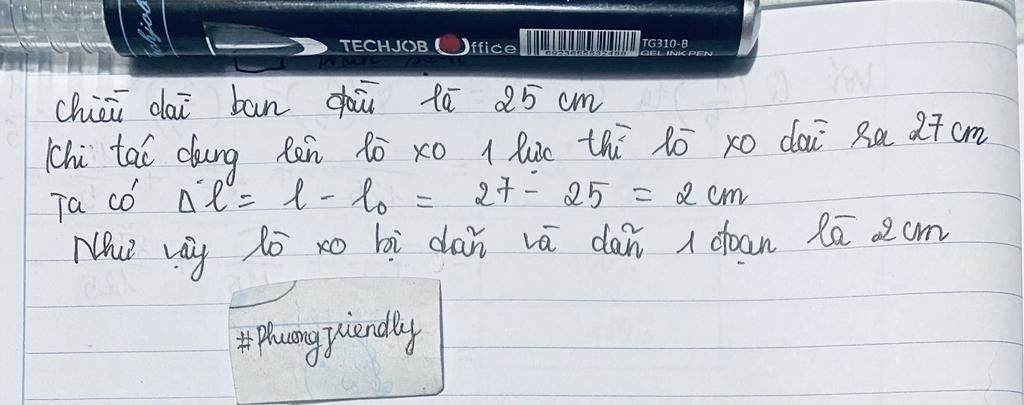 TECHJOB Office
TG310-B
GEL INK PEN
chiều dài ban đầu là 25 cm
Khi tác dụng lên lò xo 1 lực thì lò xo dài ra 27 cm
Ta có Δl = l - l₀ = 27 - 25 = 2 cm
Như vậy lò xo bị dãn và dãn 1 đoạn là 2 cm
#Phuongfriendly